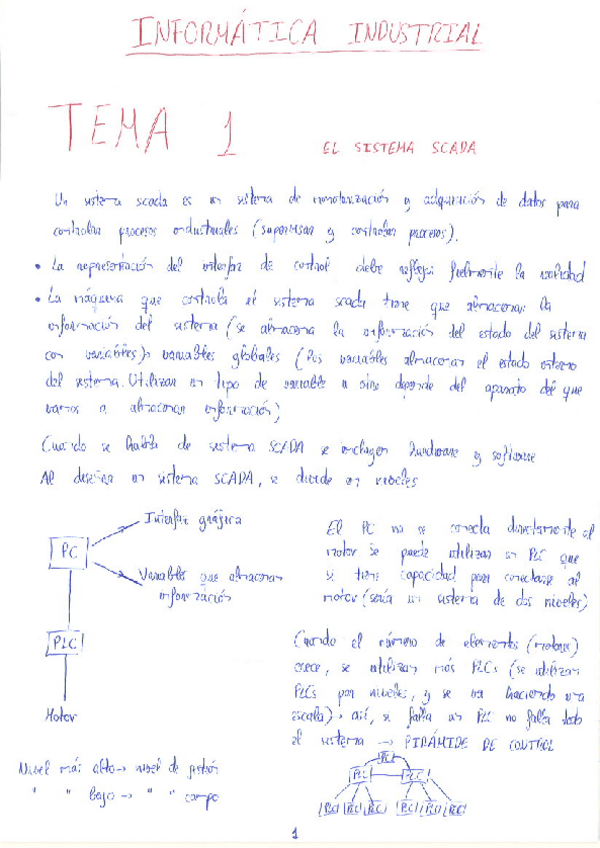 INFORMÁTICA INDUSTRIAL
TEMA 1
EL SISTEMA SCADA
Un sistema scada es un sistema de monotorización y adquisición de datos para
controlar procesos industriales (supervisar y controlar procesos).
• La representación del interfaz de control debe reflejar fielmente la realidad
• La máquina que controla el sistema scada tiene que almacenar la
información del sistema (se almacena la información del estado del sistema
con variables) variables globales (las variables almacenan el estado interno
del sistema. Utilizar un tipo de variable u otro depende del aparato del que
vamos a almacenar información)
Cuando se habla de sistema SCADA se incluyen hardware y software
Al diseñar un sistema SCADA, se divide en niveles
Interfaz gráfica
PC
Variables que almacenan
información
PLC
Motor
El PC no se conecta directamente al
motor se puede utilizar un PLC que
sí tiene capacidad para conectarse al
motor (sería un sistema de dos niveles)
Cuando el número de elementos (motores)
crece, se utilizan más PLCs (se utilizan
PLCs por niveles, y se va haciendo una
escala) así, si falla un PLC no falla todo
el sistema → PIRÁMIDE DE CONTROL
Nivel más alto → nivel de gestión
" " bajo → " " campo
PLC
PLC PLC
PLC PLC PLC PLC PLC PLC
1